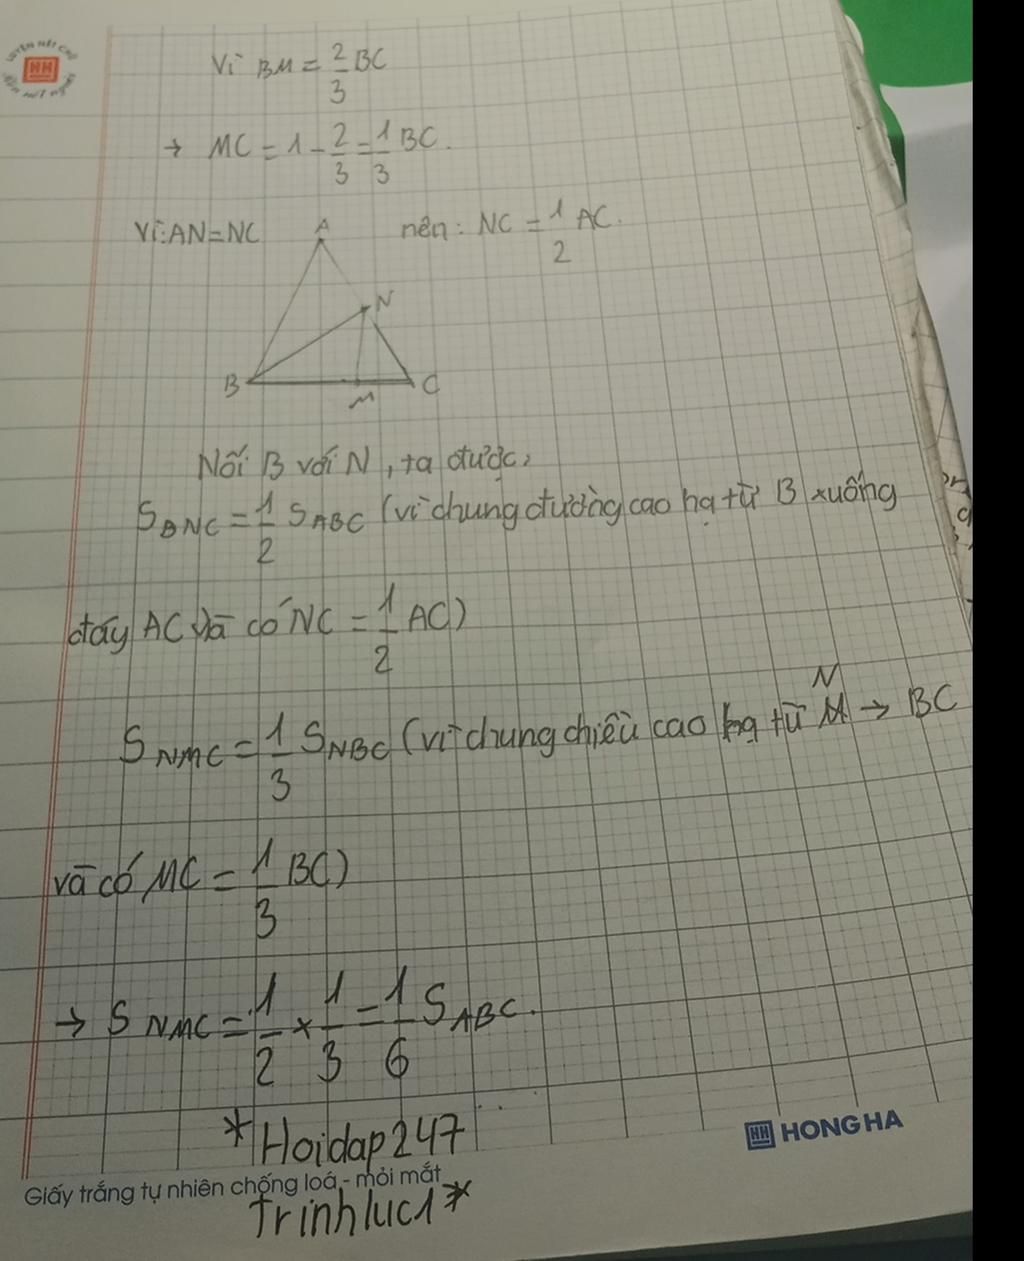 LUYỆN NÉT CHỮ
HH
Rèn nết người
Vì BM = 2/3 BC
→ MC = 1 - 2/3 = 1/3 BC.
Vì: AN = NC nên: NC = 1/2 AC.
A
N
B M C
Nối B với N, ta được,
S BNC = 1/2 S ABC (vì chung đường cao hạ từ B xuống
đáy AC và có NC = 1/2 AC)
S NMC = 1/3 S NBC (vì chung chiều cao hạ từ N → BC
và có MC = 1/3 BC)
→ S NMC = 1/2 × 1/3 = 1/6 S ABC.
*Hoidap247
HH HONG HA
Giấy trắng tự nhiên chống loá - mỏi mắt
Trinhluc1*